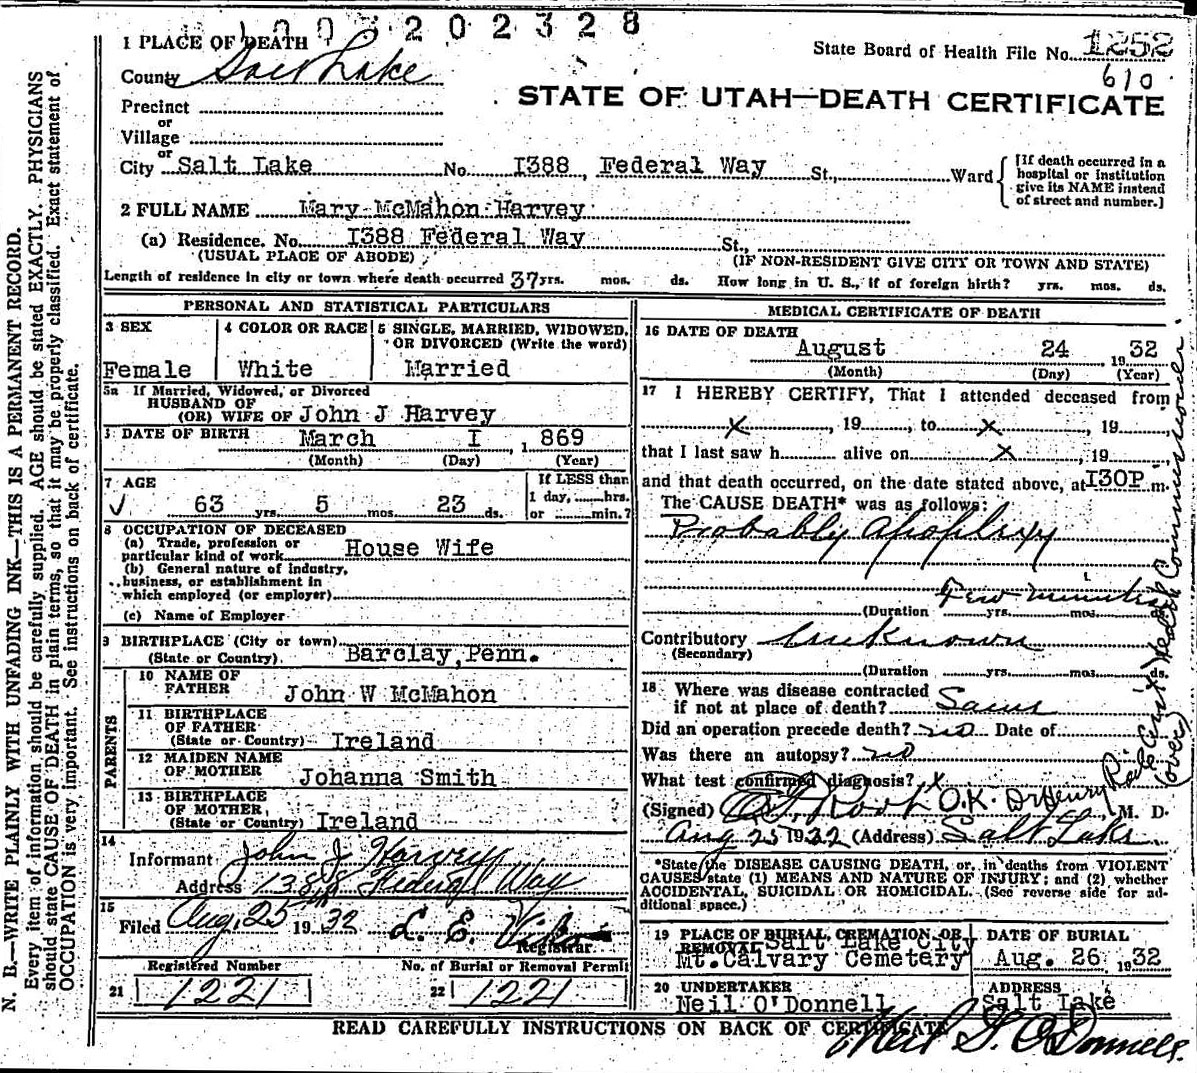 1003202328
1 PLACE OF DEATH
State Board of Health File No. 1252
County Salt Lake
610
STATE OF UTAH—DEATH CERTIFICATE
Precinct
or
Village
or
City Salt Lake No. I388, Federal Way St., Ward
[If death occurred in a
hospital or institution
give its NAME instead
of street and number.]
2 FULL NAME Mary McMahon Harvey
(a) Residence. No. I388 Federal Way St.,
(USUAL PLACE OF ABODE) (IF NON-RESIDENT GIVE CITY OR TOWN AND STATE)
Length of residence in city or town where death occurred 37 yrs. mos. ds. How long in U. S., if of foreign birth? yrs. mos. ds.
PERSONAL AND STATISTICAL PARTICULARS
3 SEX 4 COLOR OR RACE 5 SINGLE, MARRIED, WIDOWED,
OR DIVORCED (Write the word)
Female White Married
5a If Married, Widowed, or Divorced
HUSBAND OF
(OR) WIFE OF John J Harvey
DATE OF BIRTH March I, 1869
(Month) (Day) (Year)
7 AGE If LESS than
1 day, hrs.
or min.?
63 yrs. 5 mos. 23 ds.
8 OCCUPATION OF DECEASED
(a) Trade, profession or
particular kind of work House Wife
(b) General nature of industry,
business, or establishment in
which employed (or employer)
(c) Name of Employer
9 BIRTHPLACE (City or town)
(State or Country) Barclay, Penn.
PARENTS
10 NAME OF
FATHER John W McMahon
11 BIRTHPLACE
OF FATHER
(State or Country) Ireland
12 MAIDEN NAME
OF MOTHER Johanna Smith
13 BIRTHPLACE
OF MOTHER
(State or Country) Ireland
14
Informant John J Harvey
Address 1388 Federal Way
15
Filed Aug. 25 1932 L. E.
Registrar
Registered Number No. of Burial or Removal Permit
21 1221 22 1221
MEDICAL CERTIFICATE OF DEATH
16 DATE OF DEATH
August 24 1932
(Month) (Day) (Year)
17 I HEREBY CERTIFY, That I attended deceased from
x, 19, to x, 19
that I last saw h alive on x, 19
and that death occurred, on the date stated above, at I30P m.
The CAUSE DEATH* was as follows:
Probably Apoplexy
Few minutes
(Duration yrs. mos. ds.
Contributory Unknown
(Secondary)
(Duration yrs. mos. ds.
18 Where was disease contracted
if not at place of death? Same
Did an operation precede death? no Date of
Was there an autopsy? no
What test confirmed diagnosis? x
(Signed) O.K. Dr Henry M. D.
Aug 25 1932 (Address) Salt Lake
Health Commissioner
(over)
*State the DISEASE CAUSING DEATH, or, in deaths from VIOLENT
CAUSES state (1) MEANS AND NATURE OF INJURY; and (2) whether
ACCIDENTAL, SUICIDAL OR HOMICIDAL. (See reverse side for ad-
ditional space.)
19 PLACE OF BURIAL, CREMATION, OR DATE OF BURIAL
REMOVAL Salt Lake City
Mt. Calvary Cemetery Aug. 26, 1932
20 UNDERTAKER ADDRESS
Neil O'Donnell Salt Lake
READ CAREFULLY INSTRUCTIONS ON BACK OF CERTIFICATE
Neil S. O'Donnell.
N. B.—WRITE PLAINLY WITH UNFADING INK—THIS IS A PERMANENT RECORD.
Every item of information should be carefully supplied. AGE should be stated EXACTLY. PHYSICIANS
should state CAUSE OF DEATH in plain terms, so that it may be properly classified. Exact statement of
OCCUPATION is very important. See instructions on back of certificate.